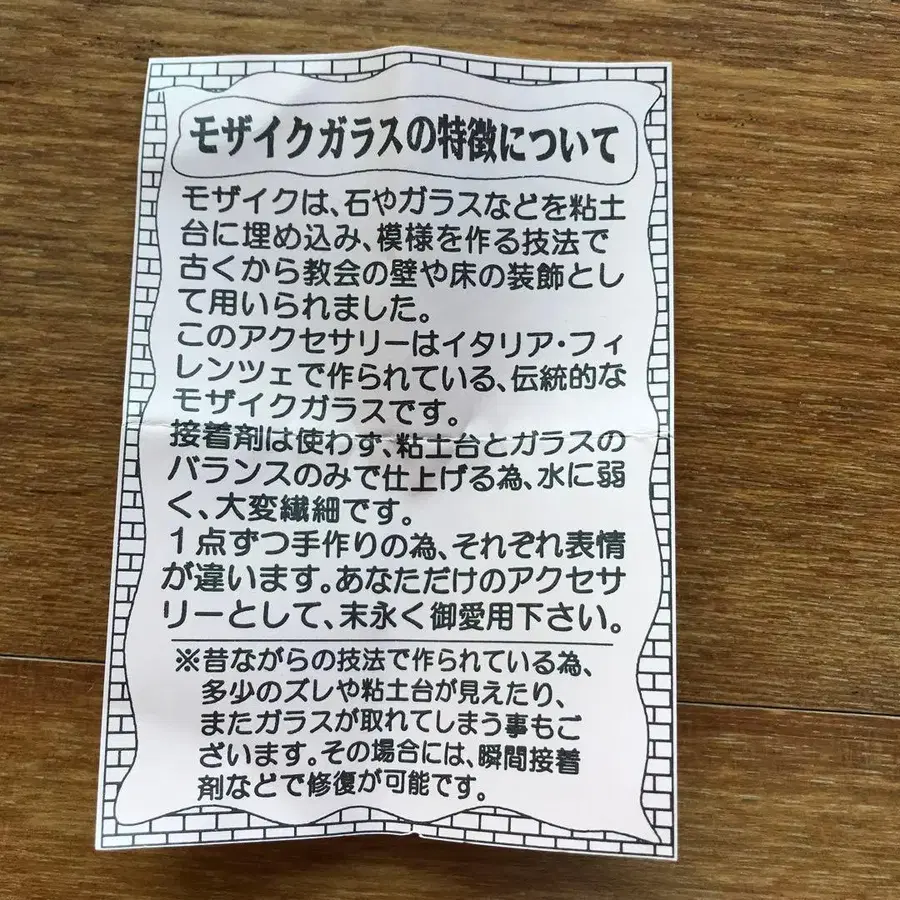 モザイクガラスの特徴について
モザイクは、石やガラスなどを粘土
台に埋め込み、模様を作る技法で
古くから教会の壁や床の装飾とし
て用いられました。
このアクセサリーはイタリア・フィ
レンツェで作られている、伝統的な
モザイクガラスです。
接着剤は使わず、粘土台とガラスの
バランスのみで仕上げる為、水に弱
く、大変繊細です。
1点ずつ手作りの為、それぞれ表情
が違います。あなただけのアクセサ
リーとして、末永く御愛用下さい。
※昔ながらの技法で作られている為、
多少のズレや粘土台が見えたり、
またガラスが取れてしまう事もご
ざいます。その場合には、瞬間接着
剤などで修復が可能です。